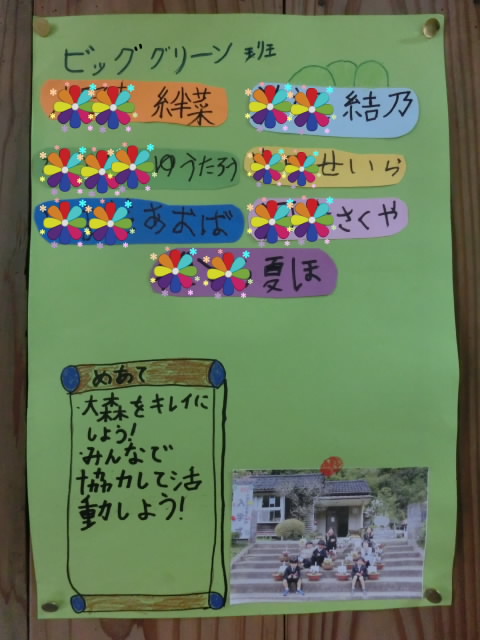 ビッググリーン班
絆菜
結乃
ゆうたろう
せいら
あおば
さくや
夏ほ
めあて
・大森をキレイに
しよう!
・みんなで
協力して活
動しよう!